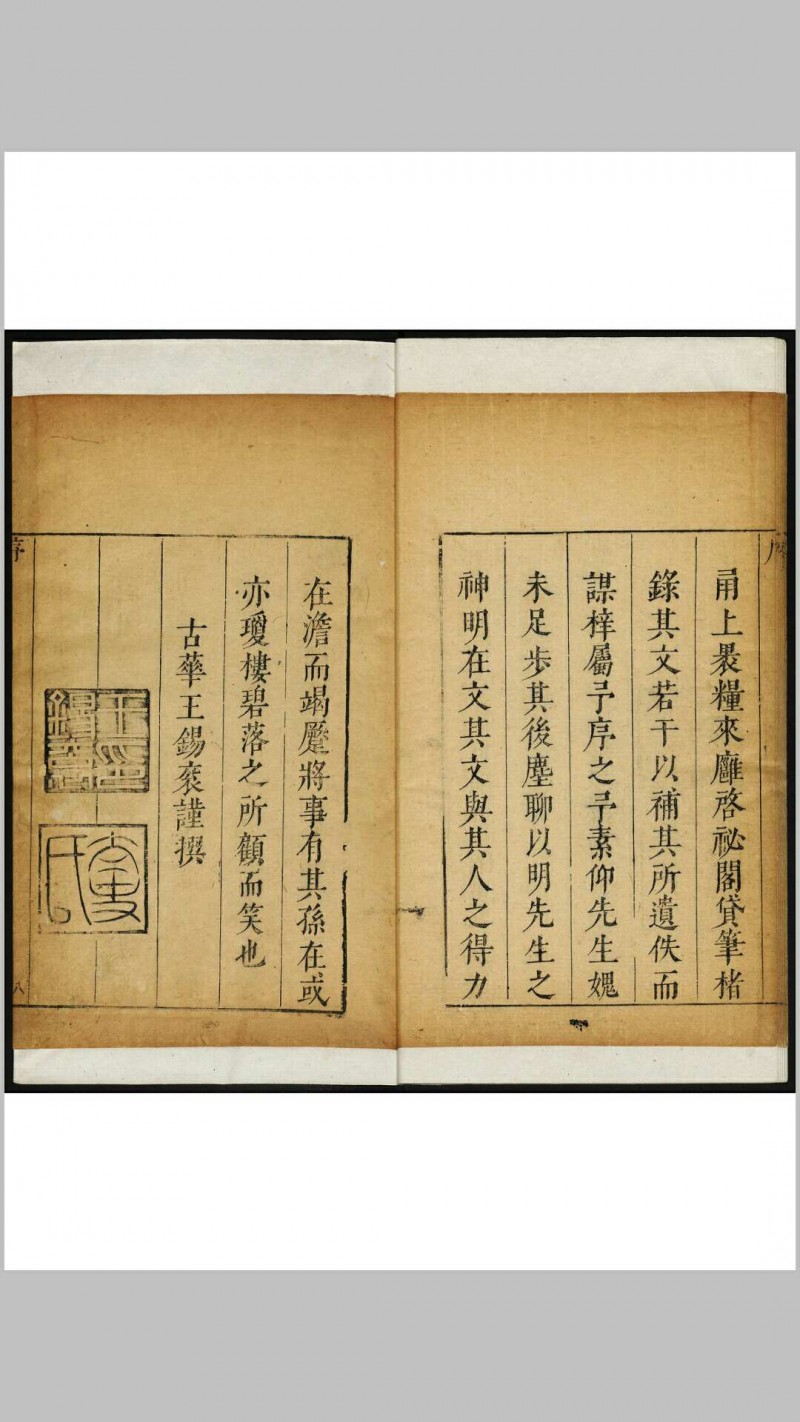 甬上褁糧來雝啓祕閣貸筆楮
錄其文若干以補其所遺佚而
謀梓屬予序之予素仰先生媿
未足步其後塵聊以明先生之
神明在文其文與其人之得力
在澹而竭蹷將事有其孫在或
亦瓊樓碧落之所顧而笑也
古華王錫袞謹撰
序
八
王錫袞印
太史氏